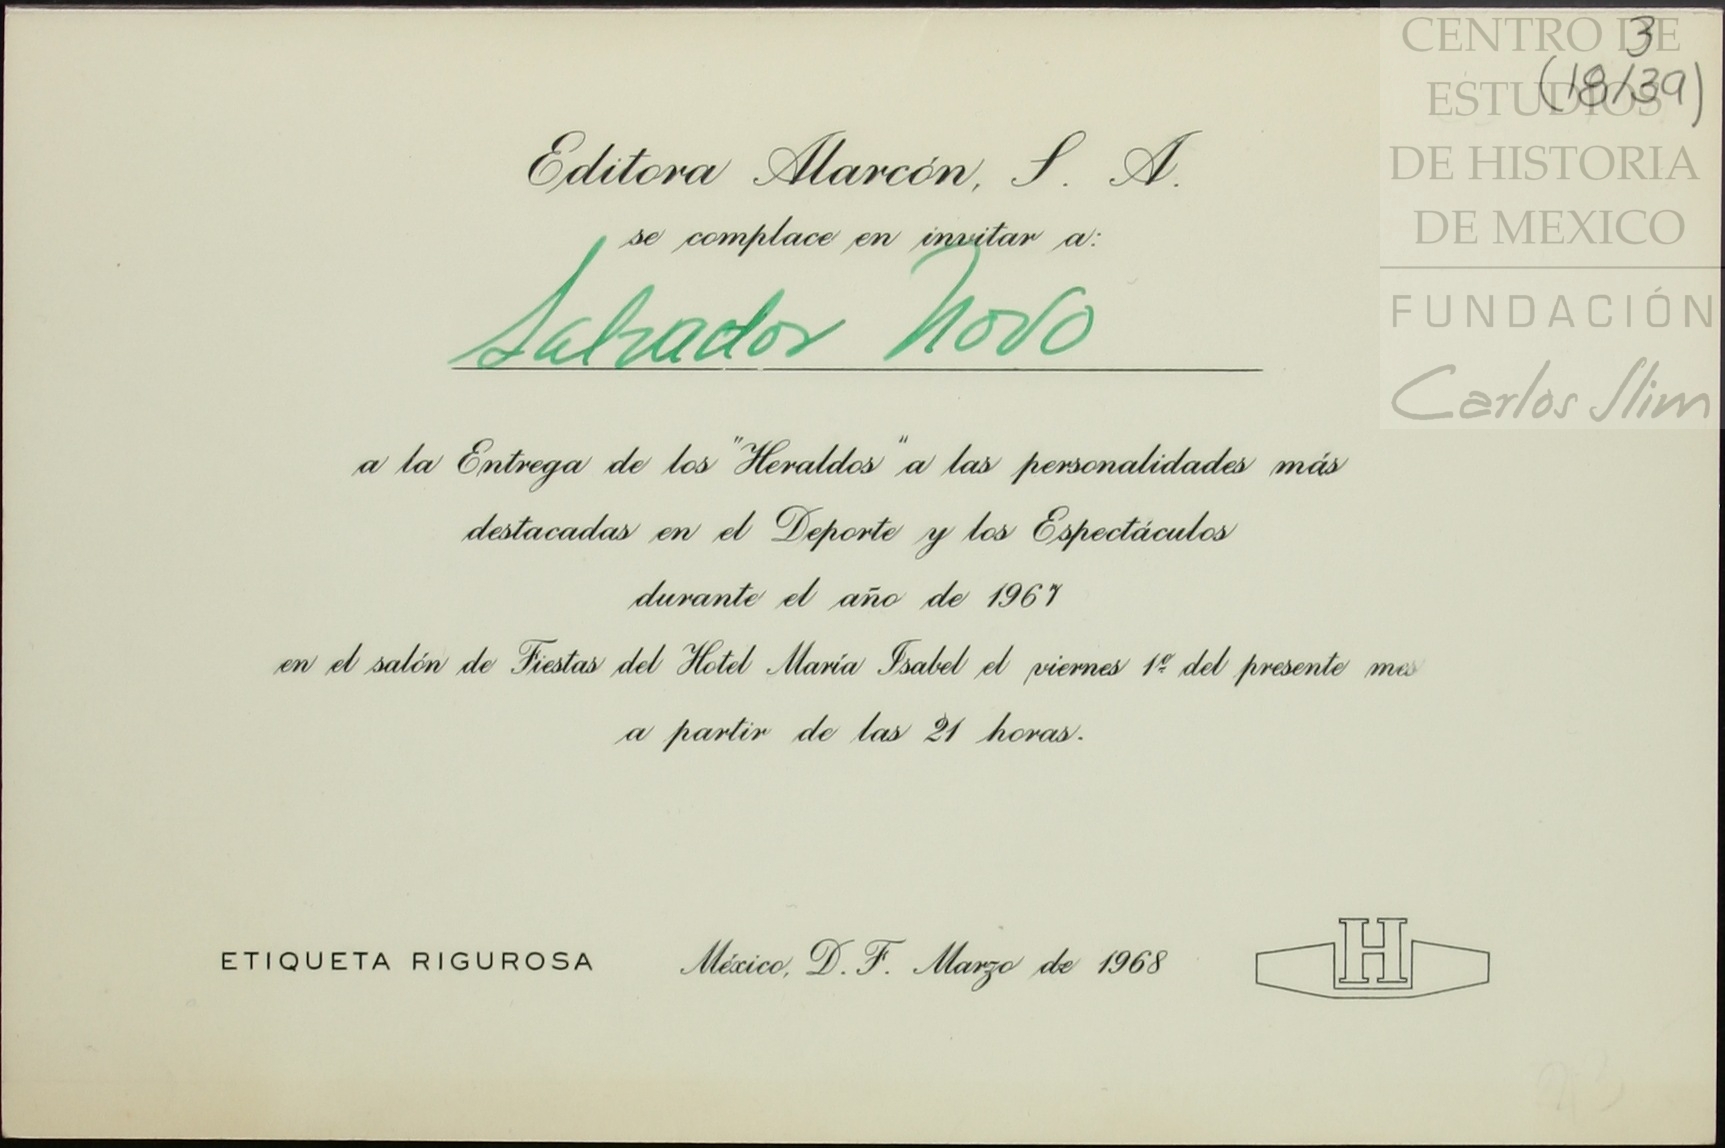 3
(18/39)
CENTRO DE
ESTUDIOS
DE HISTORIA
DE MEXICO
FUNDACIÓN
Carlos Slim
Editora Alarcón, S. A.
se complace en invitar a:
Salvador Novo
a la Entrega de los "Heraldos" a las personalidades más
destacadas en el Deporte y los Espectáculos
durante el año de 1967
en el salón de Fiestas del Hotel María Isabel el viernes 1º del presente mes
a partir de las 21 horas.
ETIQUETA RIGUROSA México, D. F. Marzo de 1968 H